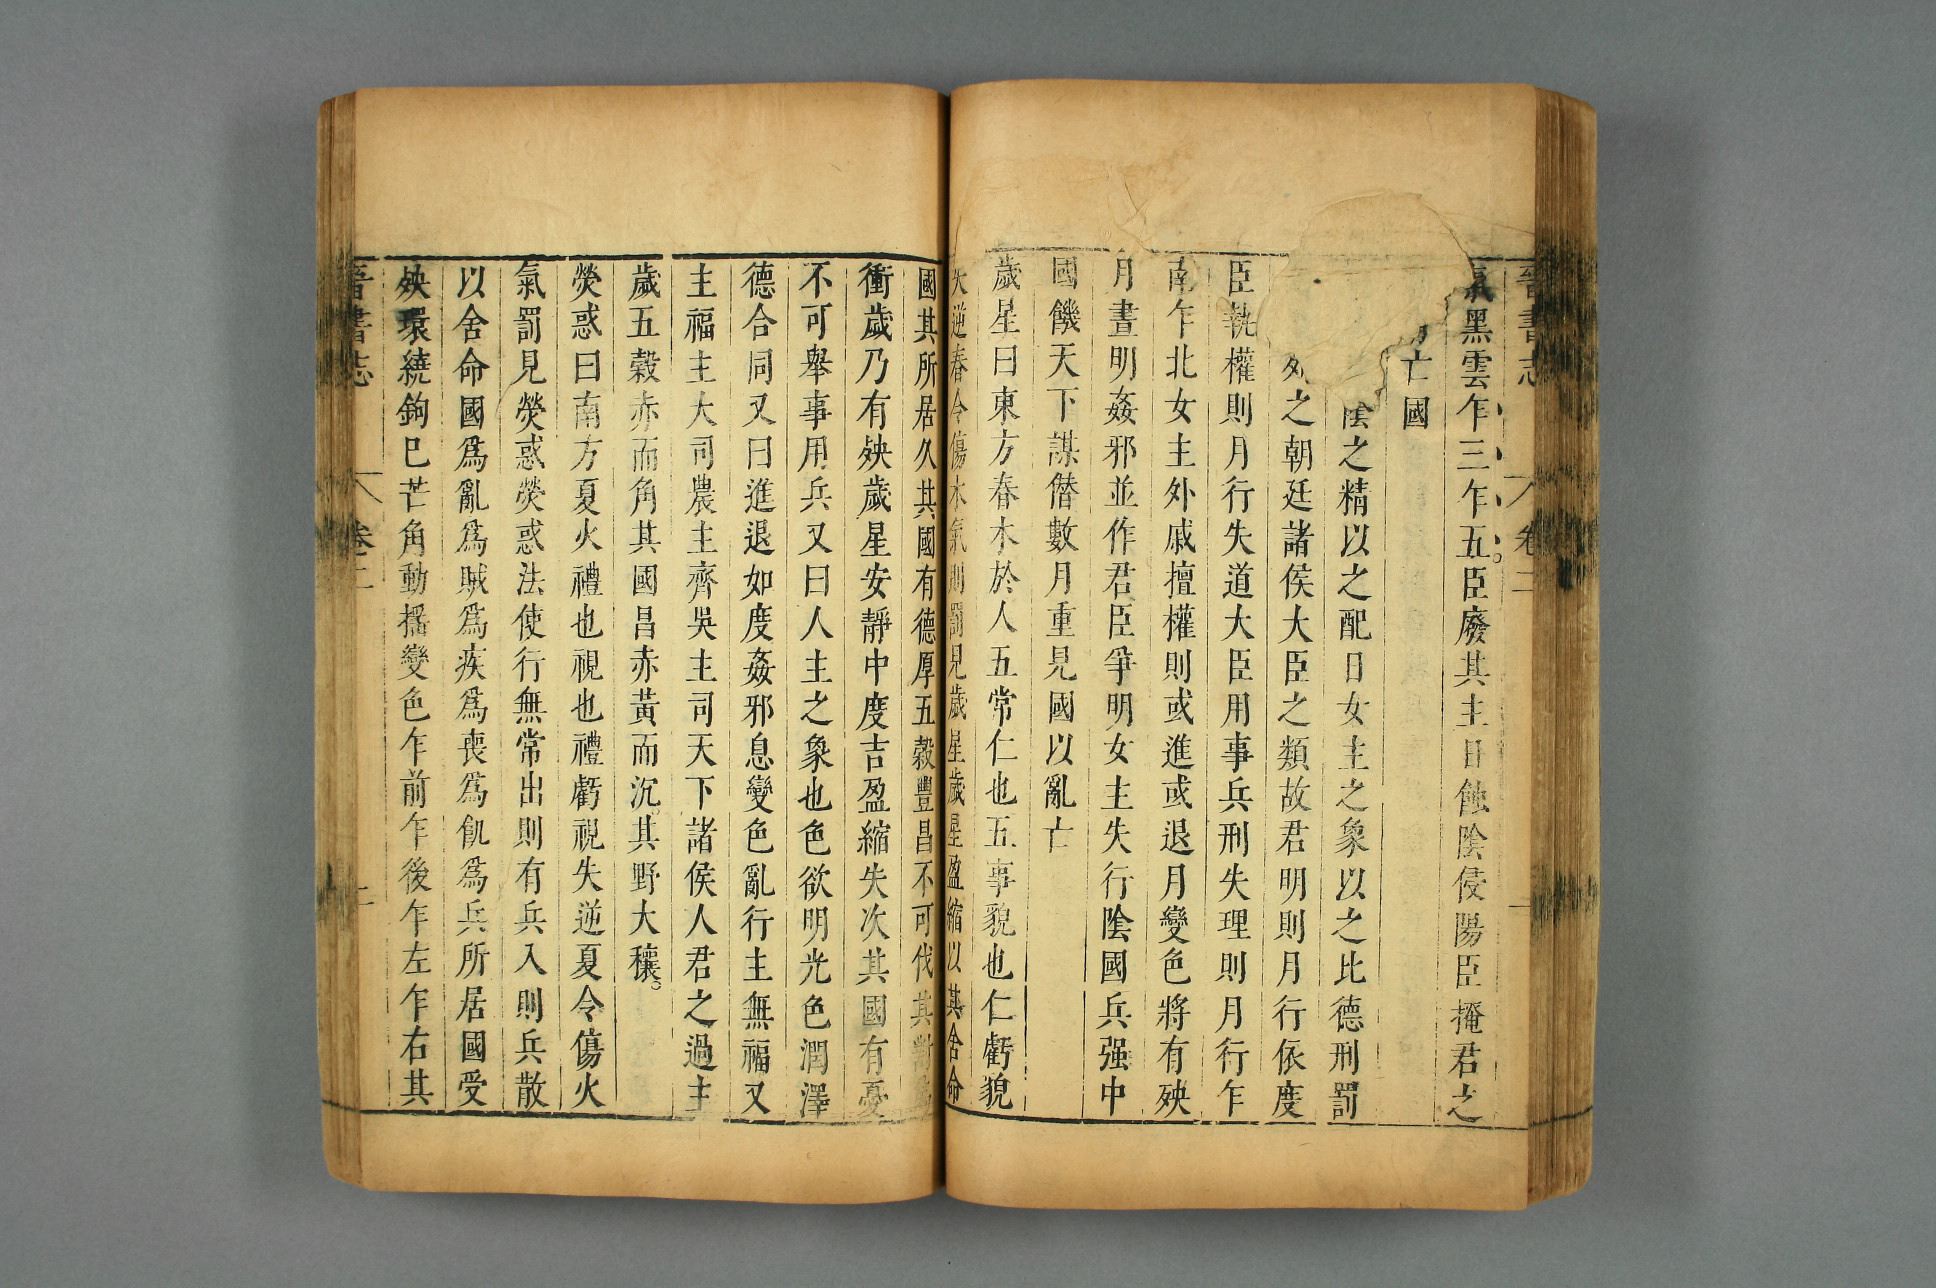 晉書志 卷二 一
氣黑雲乍三乍五臣廢其主日蝕陰侵陽臣掩君之
亡國
陰之精以之配日女主之象以之比德刑罰
之朝廷諸侯大臣之類故君明則月行依度
臣執權則月行失道大臣用事兵刑失理則月行乍
南乍北女主外戚擅權則或進或退月變色將有殃
月晝明姦邪並作君臣爭明女主失行陰國兵强中
國饑天下謀僣數月重見國以亂亡
歲星曰東方春木於人五常仁也五事貌也仁虧貌
失逆春令傷木氣則罰見歲星歲星盈縮以其舍命
國其所居久其國有德厚五穀豐昌不可伐其對爲
衝歲乃有殃歲星安靜中度吉盈縮失次其國有憂
不可舉事用兵又曰人主之象也色欲明光色潤澤
德合同又曰進退如度姦邪息變色亂行主無福又
主福主大司農主齊吳主司天下諸侯人君之過主
歲五穀赤而角其國昌赤黃而沉其野大穰
熒惑曰南方夏火禮也視也禮虧視失逆夏令傷火
氣罰見熒惑熒惑法使行無常出則有兵入則兵散
以舍命國爲亂爲賊爲疾爲喪爲飢爲兵所居國受
殃環繞鉤巳芒角動搖變色乍前乍後乍左乍右其
晉書志 卷二 二